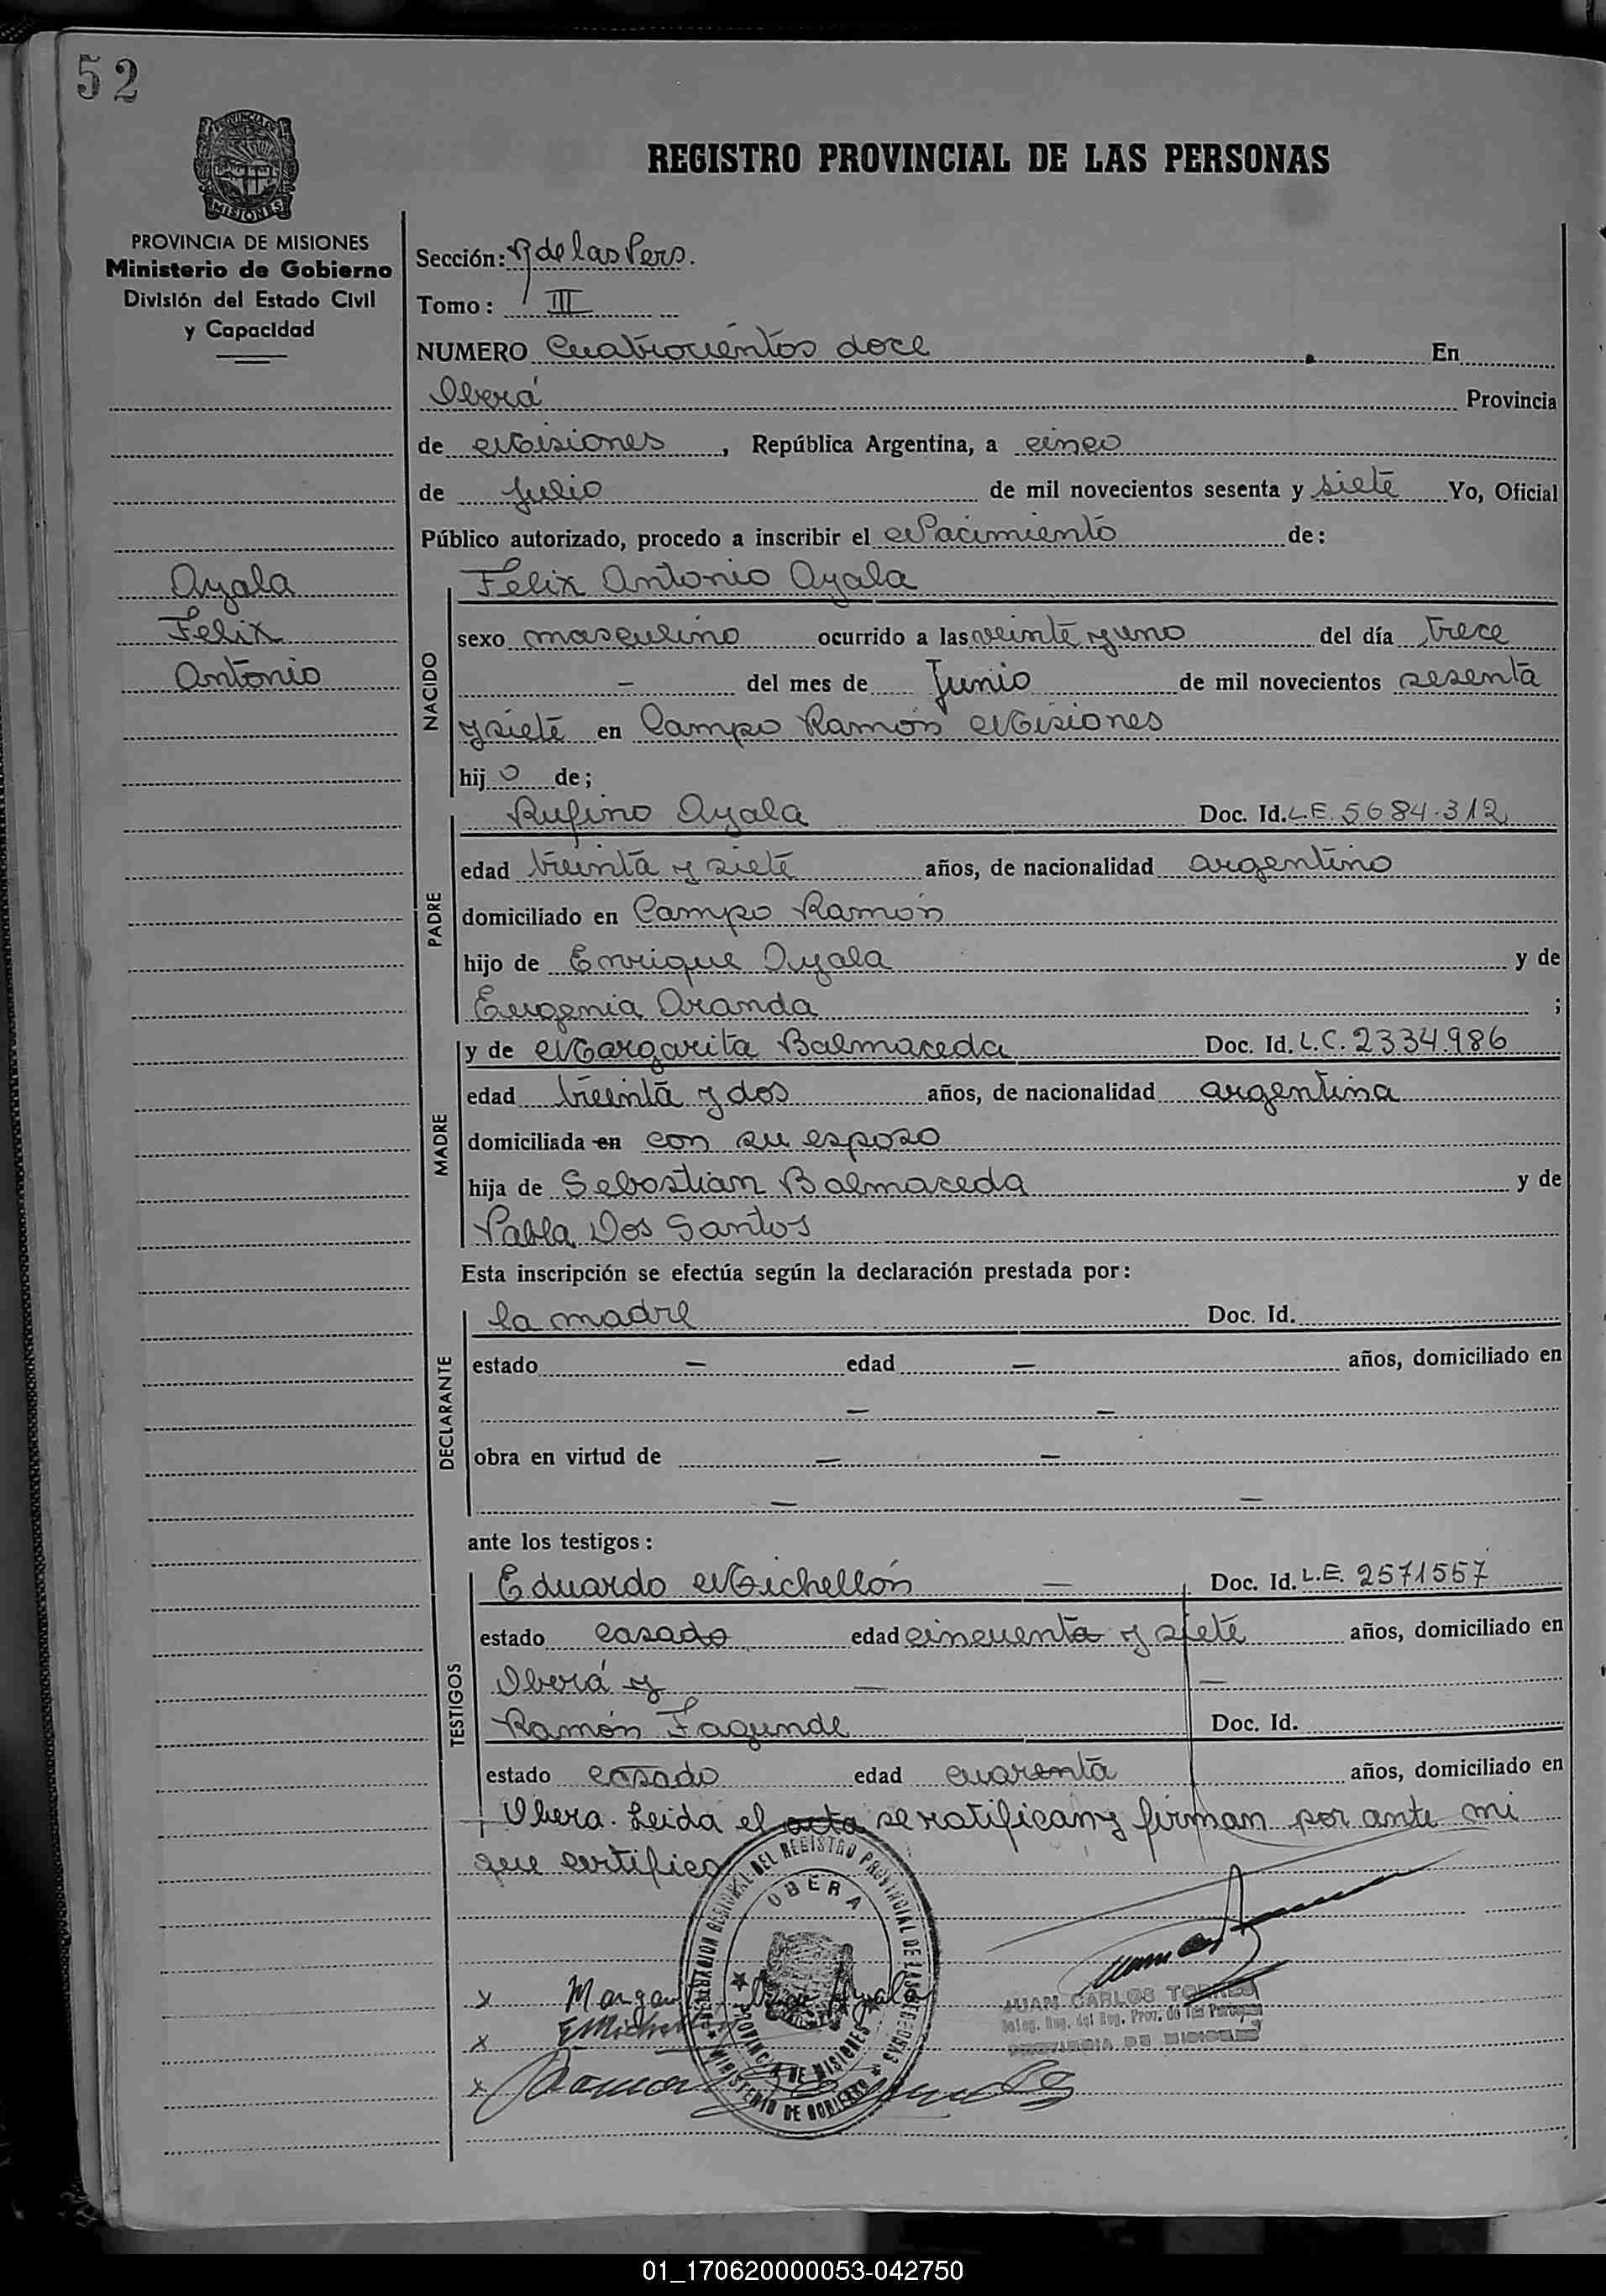 52
PROVINCIA DE
MISIONES
REGISTRO PROVINCIAL DE LAS PERSONAS
PROVINCIA DE MISIONES
Ministerio de Gobierno
División del Estado Civil
y Capacidad
Ayala
Felix
Antonio
Sección: R de las Pers.
Tomo: III
NUMERO Cuatrocientos doce En
Oberá Provincia
de Misiones, República Argentina, a cinco
de Julio de mil novecientos sesenta y siete Yo, Oficial
Público autorizado, procedo a inscribir el Nacimiento de:
NACIDO
Felix Antonio Ayala
sexo masculino ocurrido a las veinte y uno del día trece
— del mes de Junio de mil novecientos sesenta
y siete en Campo Ramón Misiones
hijo de;
PADRE
Rufino Ayala Doc. Id. L.E. 5684.312
edad treinta y siete años, de nacionalidad argentino
domiciliado en Campo Ramón
hijo de Enrique Ayala y de
Eugenia Aranda ;
MADRE
y de Margarita Balmaceda Doc. Id. L.C. 2334986
edad treinta y dos años, de nacionalidad argentina
domiciliada en con su esposo
hija de Sebastian Balmaceda y de
Pabla Dos Santos
Esta inscripción se efectúa según la declaración prestada por:
DECLARANTE
la madre Doc. Id.
estado — edad — años, domiciliado en
— —
obra en virtud de — —
— —
ante los testigos:
TESTIGOS
Eduardo Michellón — Doc. Id. L.E. 2571557
estado casado edad cincuenta y siete años, domiciliado en
Oberá y — —
Ramón Fagunde Doc. Id.
estado casado edad cuarenta años, domiciliado en
Obera. Leida el acta se ratifican y firman por ante mi
que certifico
DELEGACION REGIONAL DEL REGISTRO PROVINCIAL DE LAS PERSONAS
OBERA
PROVINCIA DE MISIONES
MINISTERIO DE GOBIERNO
x
x E Michellon
x Ramon
JUAN CARLOS TORRES
Deleg. Reg. del Reg. Prov. de las Personas
PROVINCIA DE MISIONES
01_170620000053-042750